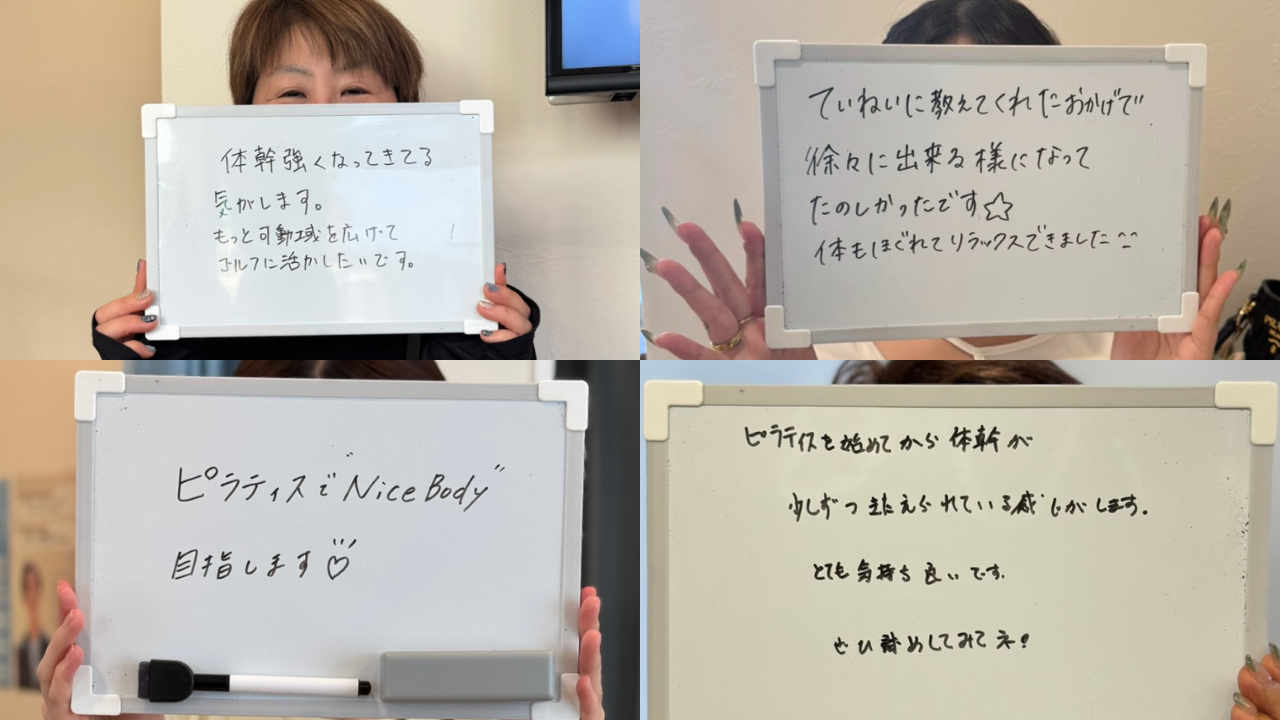 体幹強くなってきてる
気がします。
もっと可動域を広げて
ゴルフに活かしたいです。
ていねいに教えてくれたおかげで
徐々に出来る様になって
たのしかったです☆
体もほぐれてリラックスできました^^
ピラティスで"Nice Body"
目指します♡
ピラティスを始めてから体幹が
少しずつ鍛えられている感じがします。
とても気持ち良いです。
ぜひ試めしてみてネ!